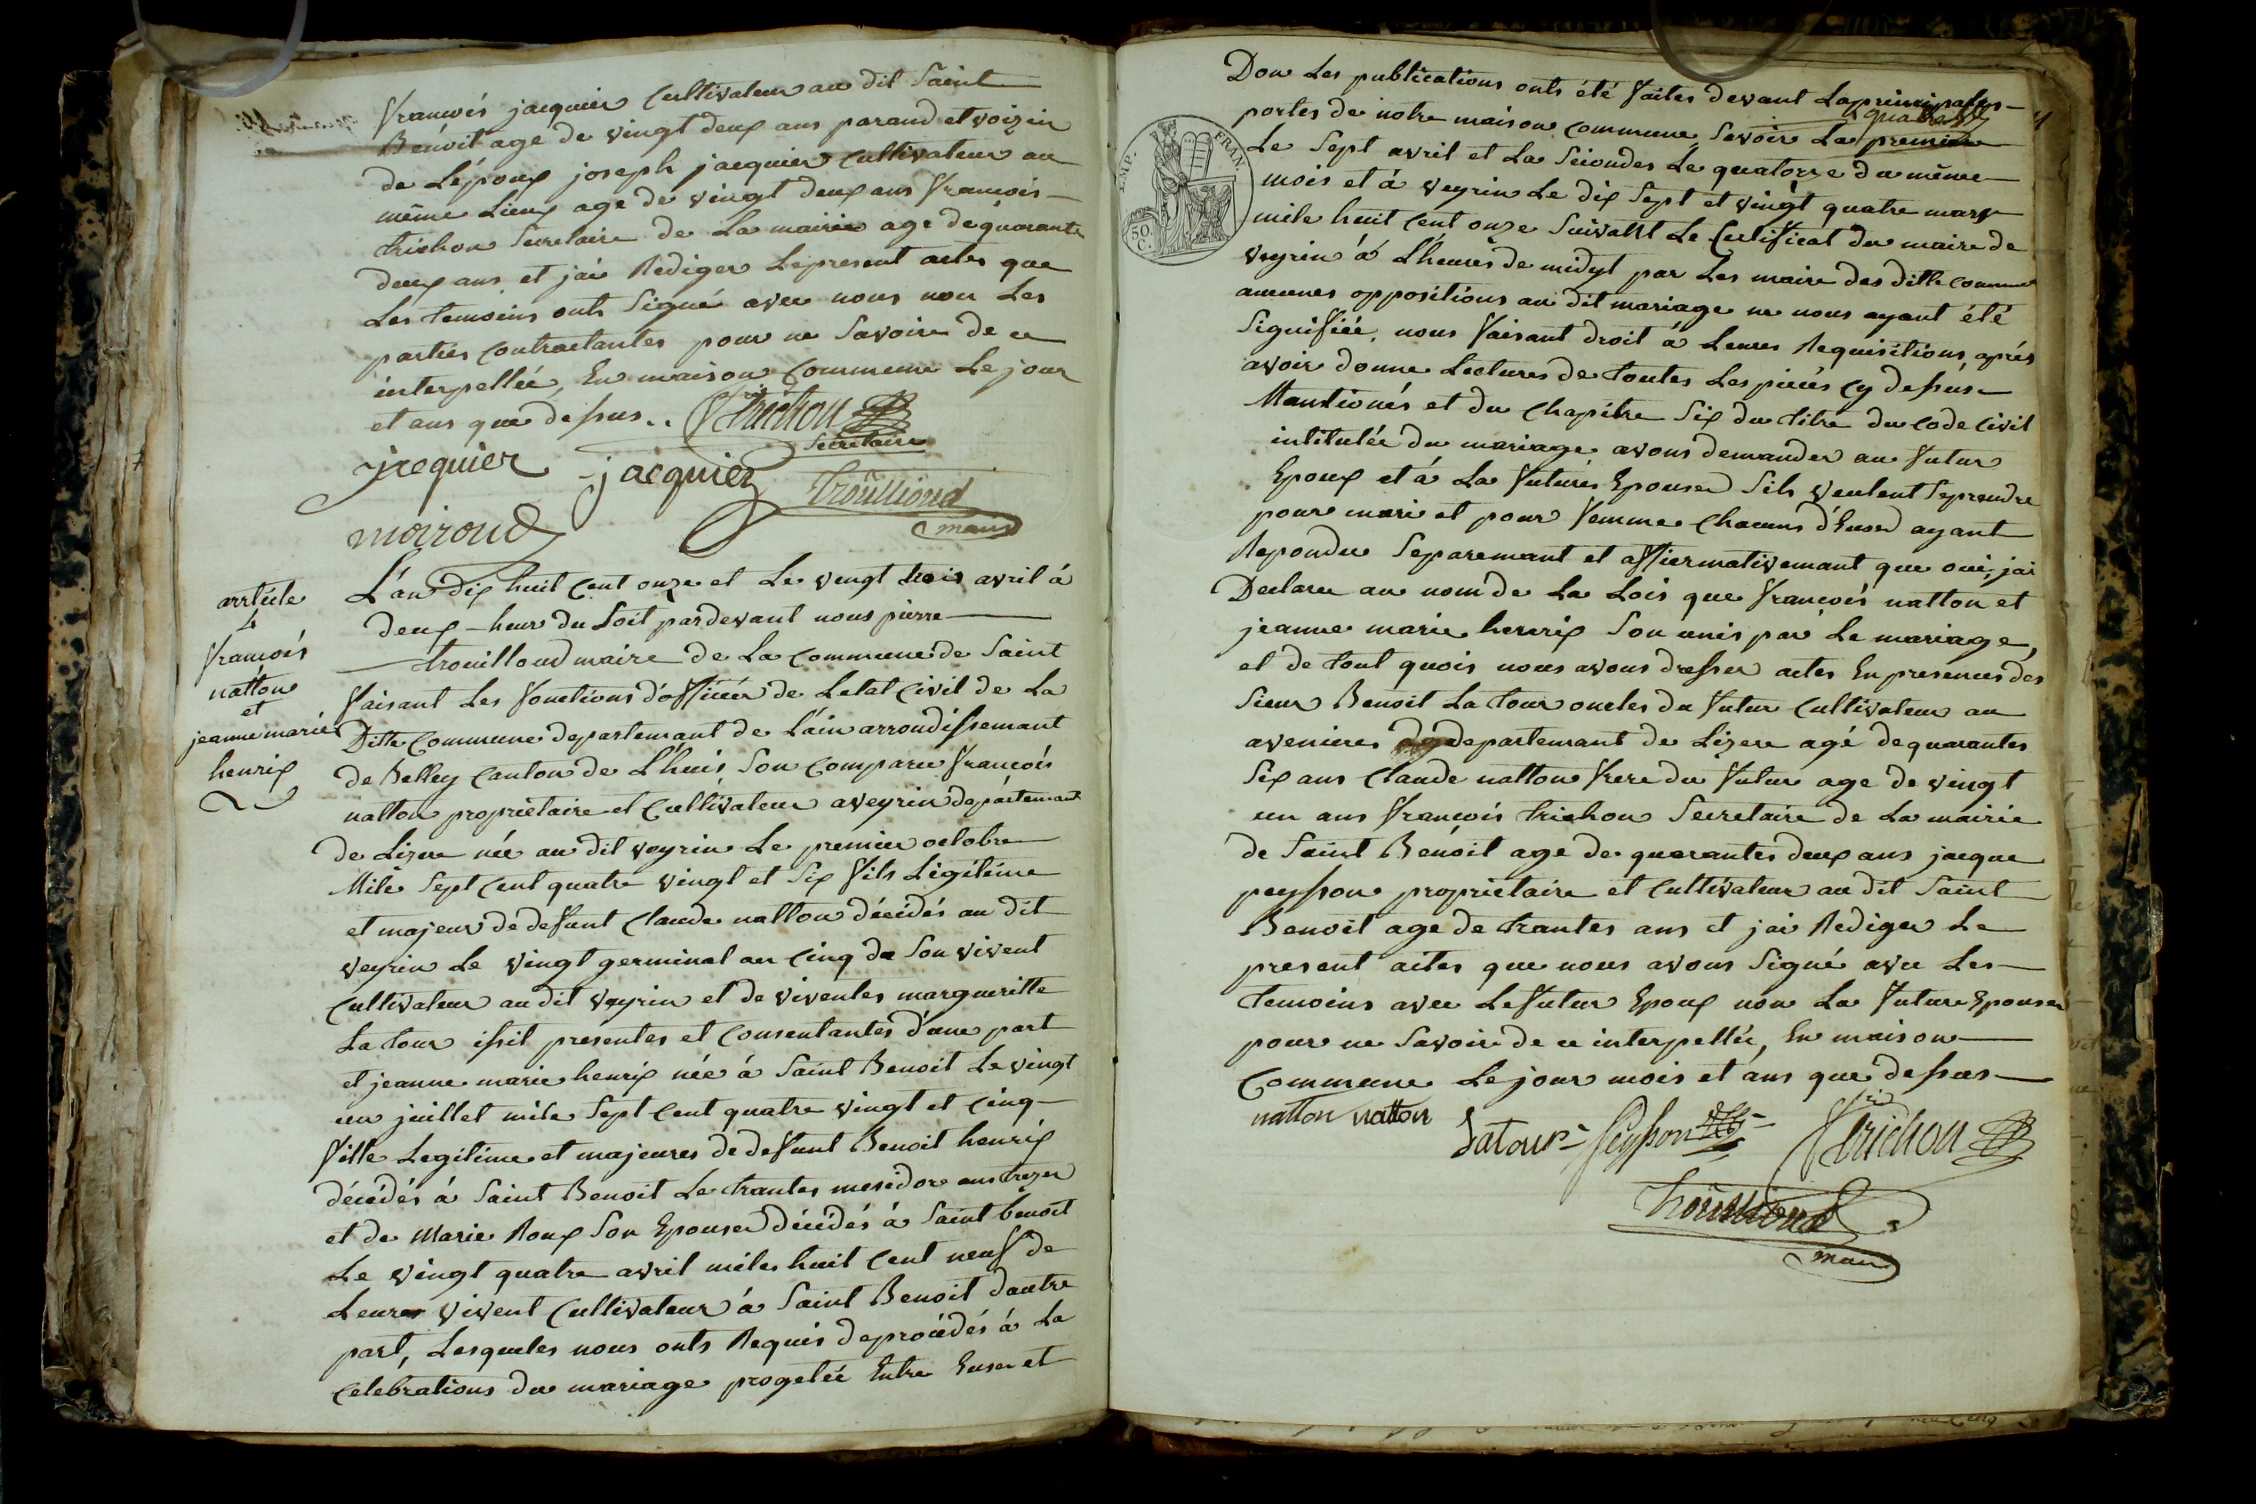 francois jacquier Cultivateur au dit Saint
Benoit age de vingt deux ans parand et voizin
de L'époux joseph jacquier Cultivateur au
même Lieux age de vingt deux ans francois
trichon Secretaire de La mairie age de quarante
deux ans et jai Rediger Le present actes que
Les temoins onts Signé avec nous non Les
parties Contractantes pour ne Savoire de ce
interpellée, En maison Commune Le jour
et ans que dessus.. trichon
Secretaire
jacquier jacquier trouilloud
maire
moiroud
article
4
francois
natton
et
jeanne marie
henrix
L'an dix huit Cent onze et Le vingt trois avril á
deux heur du Soit pardevant nous pierre
trouilloud maire de La Commune de Saint
faisant Les fonctions d'officier de Letat Civil de La
Ditte Commune departemant de L'ain arrondissemant
de Belley Canton de L'huis Son Comparu francois
natton propriétaire et Cultivateur a veyrin departemant
de Lizere née au dit veyrin Le premier octobre
Mile Sept Cent quatre vingt et Six fils Légitime
et majeur de defunt Claude natton décédés au dit
veyrin Le vingt germinal an Cinq de Son vivent
Cultivateur au dit veyrin et de viventes margueritte
La tour issit presentes et Consentantes d'une part
et jeanne marie henrix née á Saint Benoit Le vingt
un juillet mile Sept Cent quatre vingt et Cinq
fille Legitime et majeures de defunt Benoit henrix
décédés á Saint Benoit Le trantes mesidor ans trezer
et de Marie Roux Son Epouser décédés á Saint benoit
Le vingt quatre avril miles huit Cent neuf de
Leures vivent Cultivateur á Saint Benoit dautre
part, Lesqueles nous onts Requis de procédés á La
Celebrations du mariage progetée Entre Euser et
Don Les publications onts été faites devant La principales
portes de notre maison Commune, Savoire La premiere
Le Sept avril et La Secondes Le quatorze du même
mois et á veyrin Le dix Sept et vingt quatre mars
mile huit Cent onze Suivant Le Certificat du maire de
veyrin á L'heures de midyt par Les maire des ditte Commune
aucunes oppositions au dit mariage ne nous ayant été
Signifiée, nous faisant droit á Leures Requisitions, aprés
avoir donne Lectures de toutes Les pieces Cy dessus
Mantionés et du Chapitre Six du titre du Code Civil
intitulée du mariage avons demander au futur
Epoux et á La futures Epouser Sils veulent Seprendre
pour mari et pour femme Chacuns d'Euser ayant
Repondu Separemant et affiermativemant que oui, jai
Declarer au nom de La Lois que francois natton et
jeanne marie henrix Son unis par Le mariage,
et de tout quois nous avons dresser actes En presences des
Sieur Benoit La tour oncles du futur Cultivateur au
avenieres departemant de Lizere agé de quarantes
Six ans Claude natton frere du futur age de vingt
un ans francois trichon Secretaire de La mairie
de Saint Benoit age de quarantes deux ans jacque
peysson proprietaire et Cultivateur au dit Saint
Benoit age de trantes ans et jai Rediger Le
present actes que nous avons Signé avec Les
temoins avec Le futur Epoux non La future Epouser
pour ne Savoire de ce interpellée, En maison
Commune Le jour mois et ans que dessus
natton natton Latour peysson trichon
trouilloud
maire
EMP. FRAN.
50.
C.